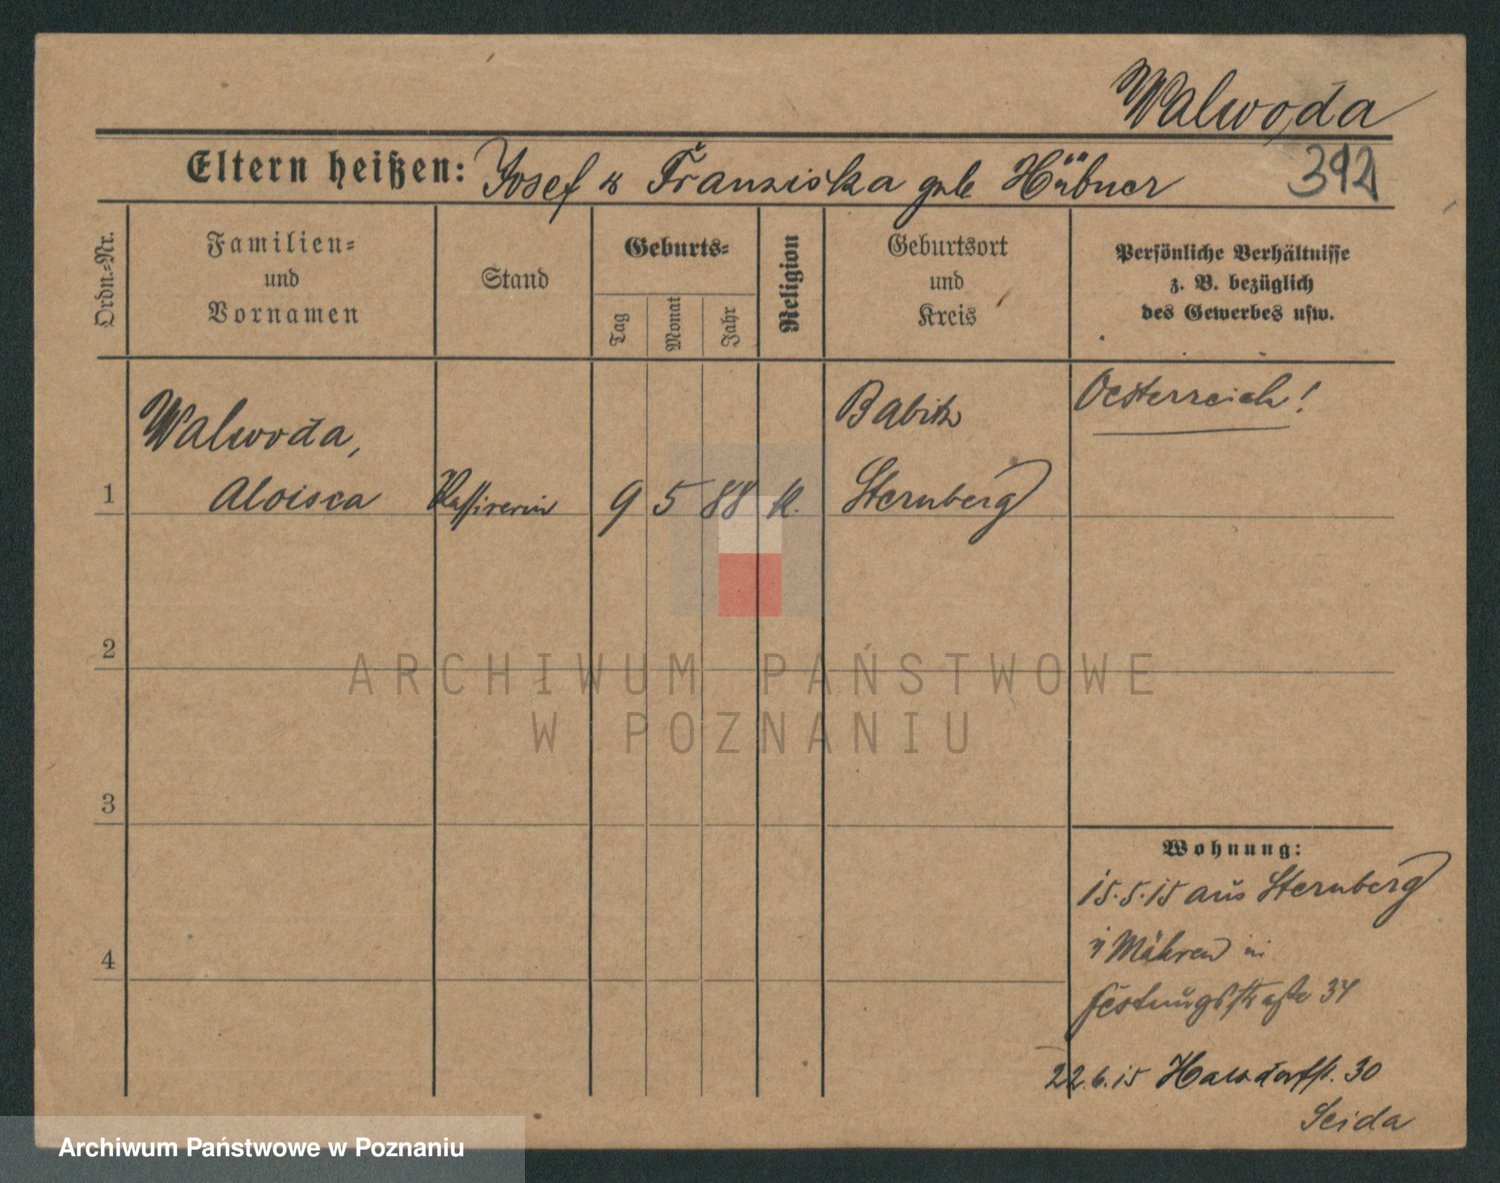 Walwoda
Eltern heißen: Josef & Franziska geb Hübner 392
Ordn.-Nr.
Familien=
und
Vornamen
Stand
Geburts=
Tag
Monat
Jahr
Religion
Geburtsort
und
Kreis
Persönliche Verhältnisse
z. B. bezüglich
des Gewerbes usw.
1 Walwoda,
Aloisca
Kassirerin
9 5 88 k.
Babitz
Sternberg
Oesterreich!
2
3
4
Wohnung:
15.5.15 aus Sternberg
Mähren in
Festungsstraße 34
22.6.15 30
Seida
ARCHIWUM PAŃSTWOWE
W POZNANIU
Archiwum Państwowe w Poznaniu